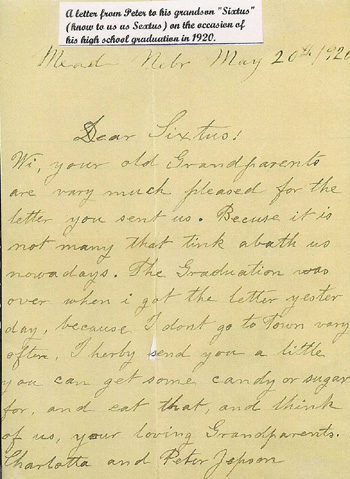 A letter from Peter to his grandson "Sixtus"
(know to us as Sextus) on the occasion of
his high school graduation in 1920.
Mead Nebr May 20th/1920
Dear Sixtus!
Wi, your old Grandparents
are vary much pleased for the
letter you sent us. Becuse it is
not many that tink abath us
nowadays. The Graduation was
over when i got the letter yester
day, because I dont go to Town vary
often, I herby send you a little
you can get some candy or sugar
for, and eat that, and think
of us, your loving Grandparents.
Charlotta and Peter Jepson